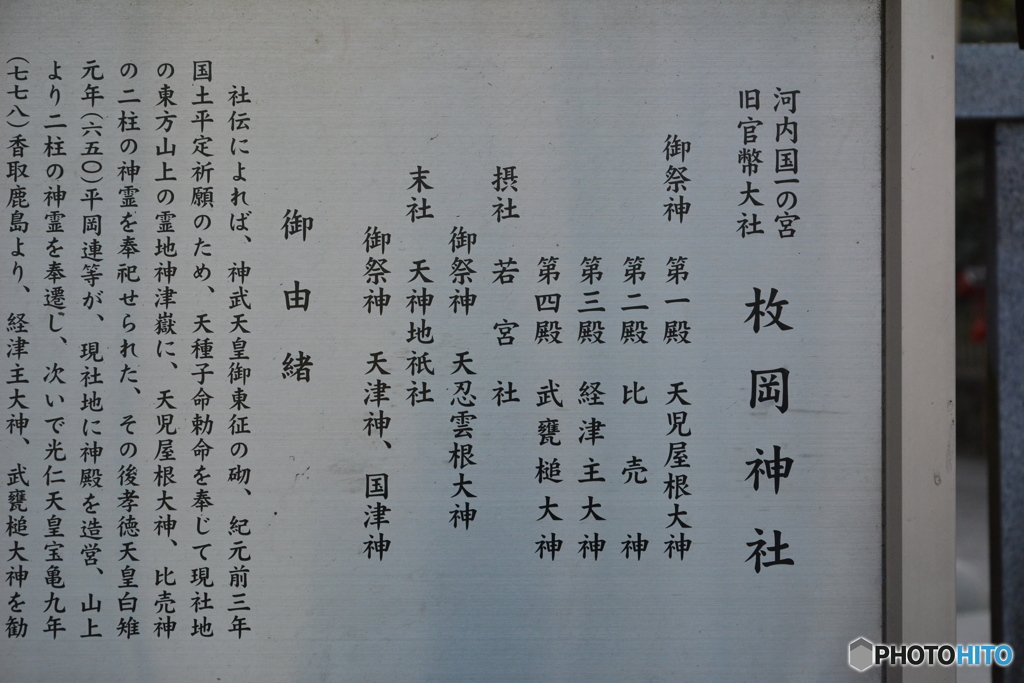 河内国一の宮
旧官幣大社
枚岡神社
御祭神 第一殿 天児屋根大神
第二殿 比売神
第三殿 経津主大神
第四殿 武甕槌大神
摂社 若宮社
御祭神 天忍雲根大神
末社 天神地祇社
御祭神 天津神、国津神
御由緒
社伝によれば、神武天皇御東征の砌、紀元前三年
国土平定祈願のため、天種子命勅命を奉じて現社地
の東方山上の霊地神津嶽に、天児屋根大神、比売神
の二柱の神霊を奉祀せられた、その後孝徳天皇白雉
元年(六五〇)平岡連等が、現社地に神殿を造営、山上
より二柱の神霊を奉遷し、次いで光仁天皇宝亀九年
(七七八)香取鹿島より、経津主大神、武甕槌大神を勧
PHOTOHITO